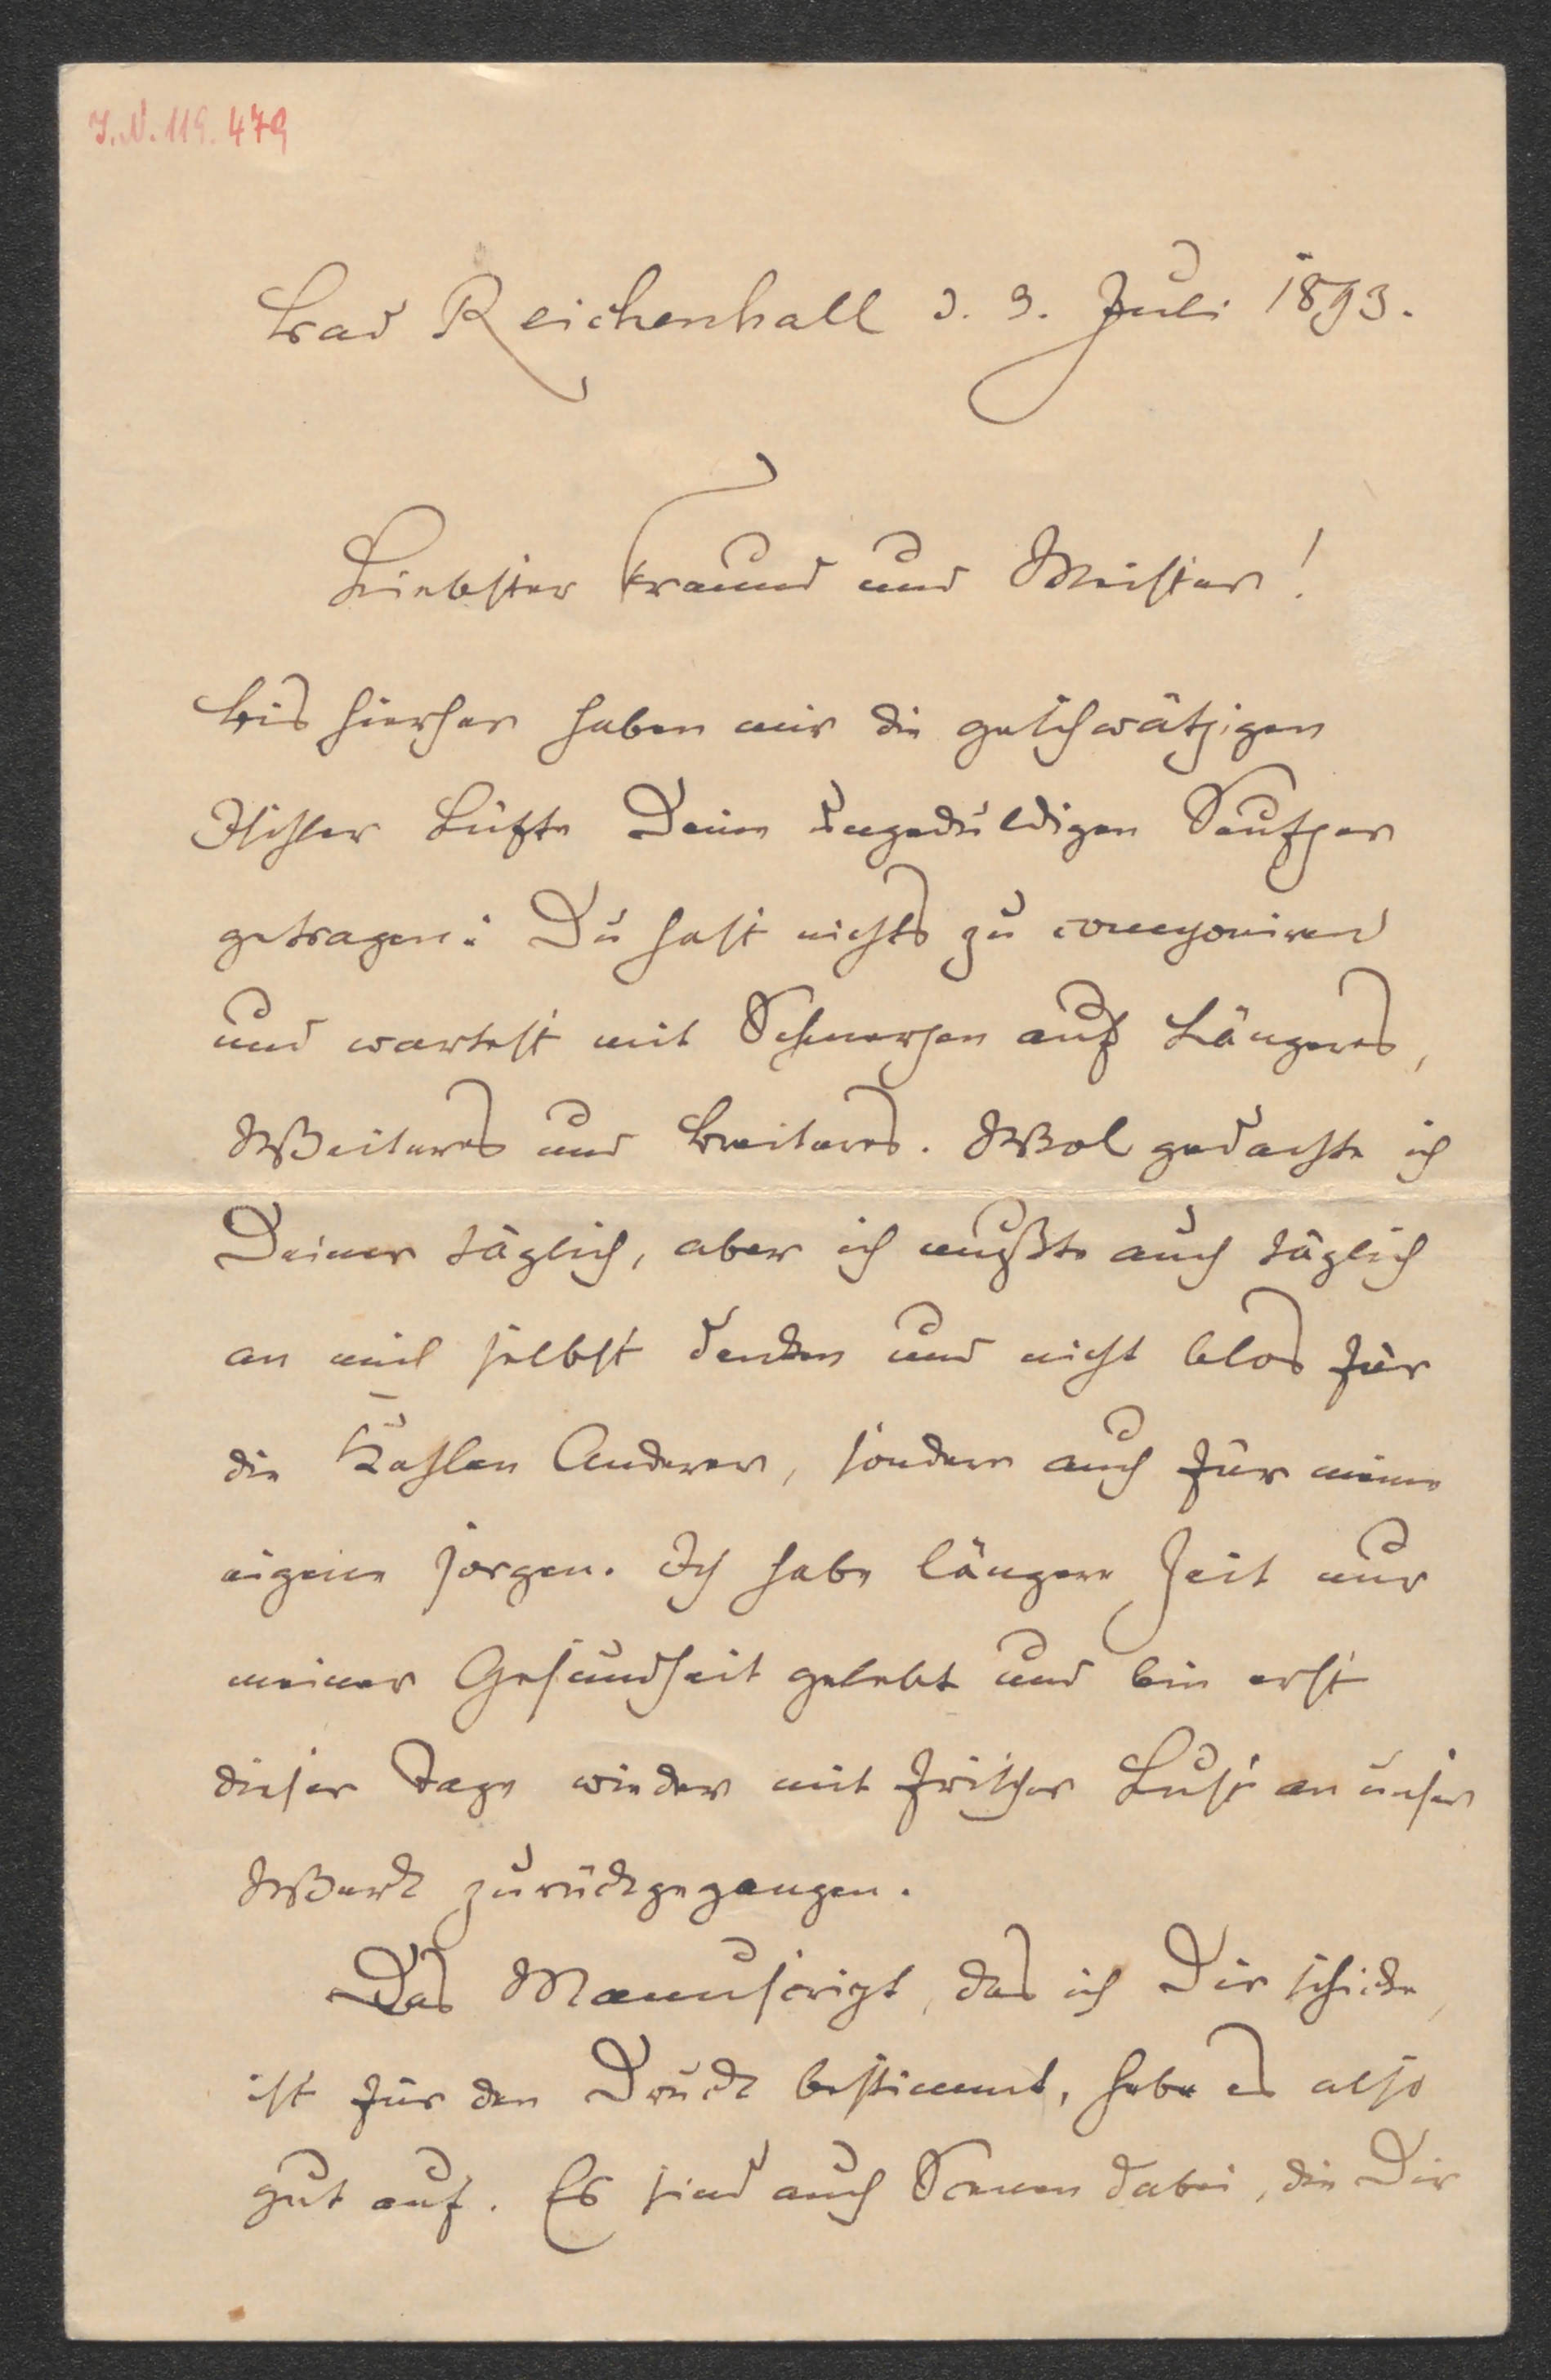 I.N. 119.479
Bad Reichenhall d. 9. Juli 1893.
Liebster Freund und Meister!
Bis hierher haben mir die geschwätzigen
Ischler Lüfte Deine ungeduldigen Seufzer
getragen: Du hast nichts zu componiren
und wartest mit Schmerzen auf Längeres,
Weiteres und Breiteres. Wol gedachte ich
Deiner täglich, aber ich mußte auch täglich
an mich selbst denken und nicht blos für
die Anderer, sondern auch für meine
eigene sorgen. Ich habe längere Zeit nur
meiner Gesundheit gelebt und bin erst
dieser Tage wieder mit frischer Lust an unser
Werk zurückgegangen.
Das Manuscript, das ich Dir schicke,
ist für den Druck bestimmt, hebe es also
gut auf. Es sind auch Scenen dabei, die Dir